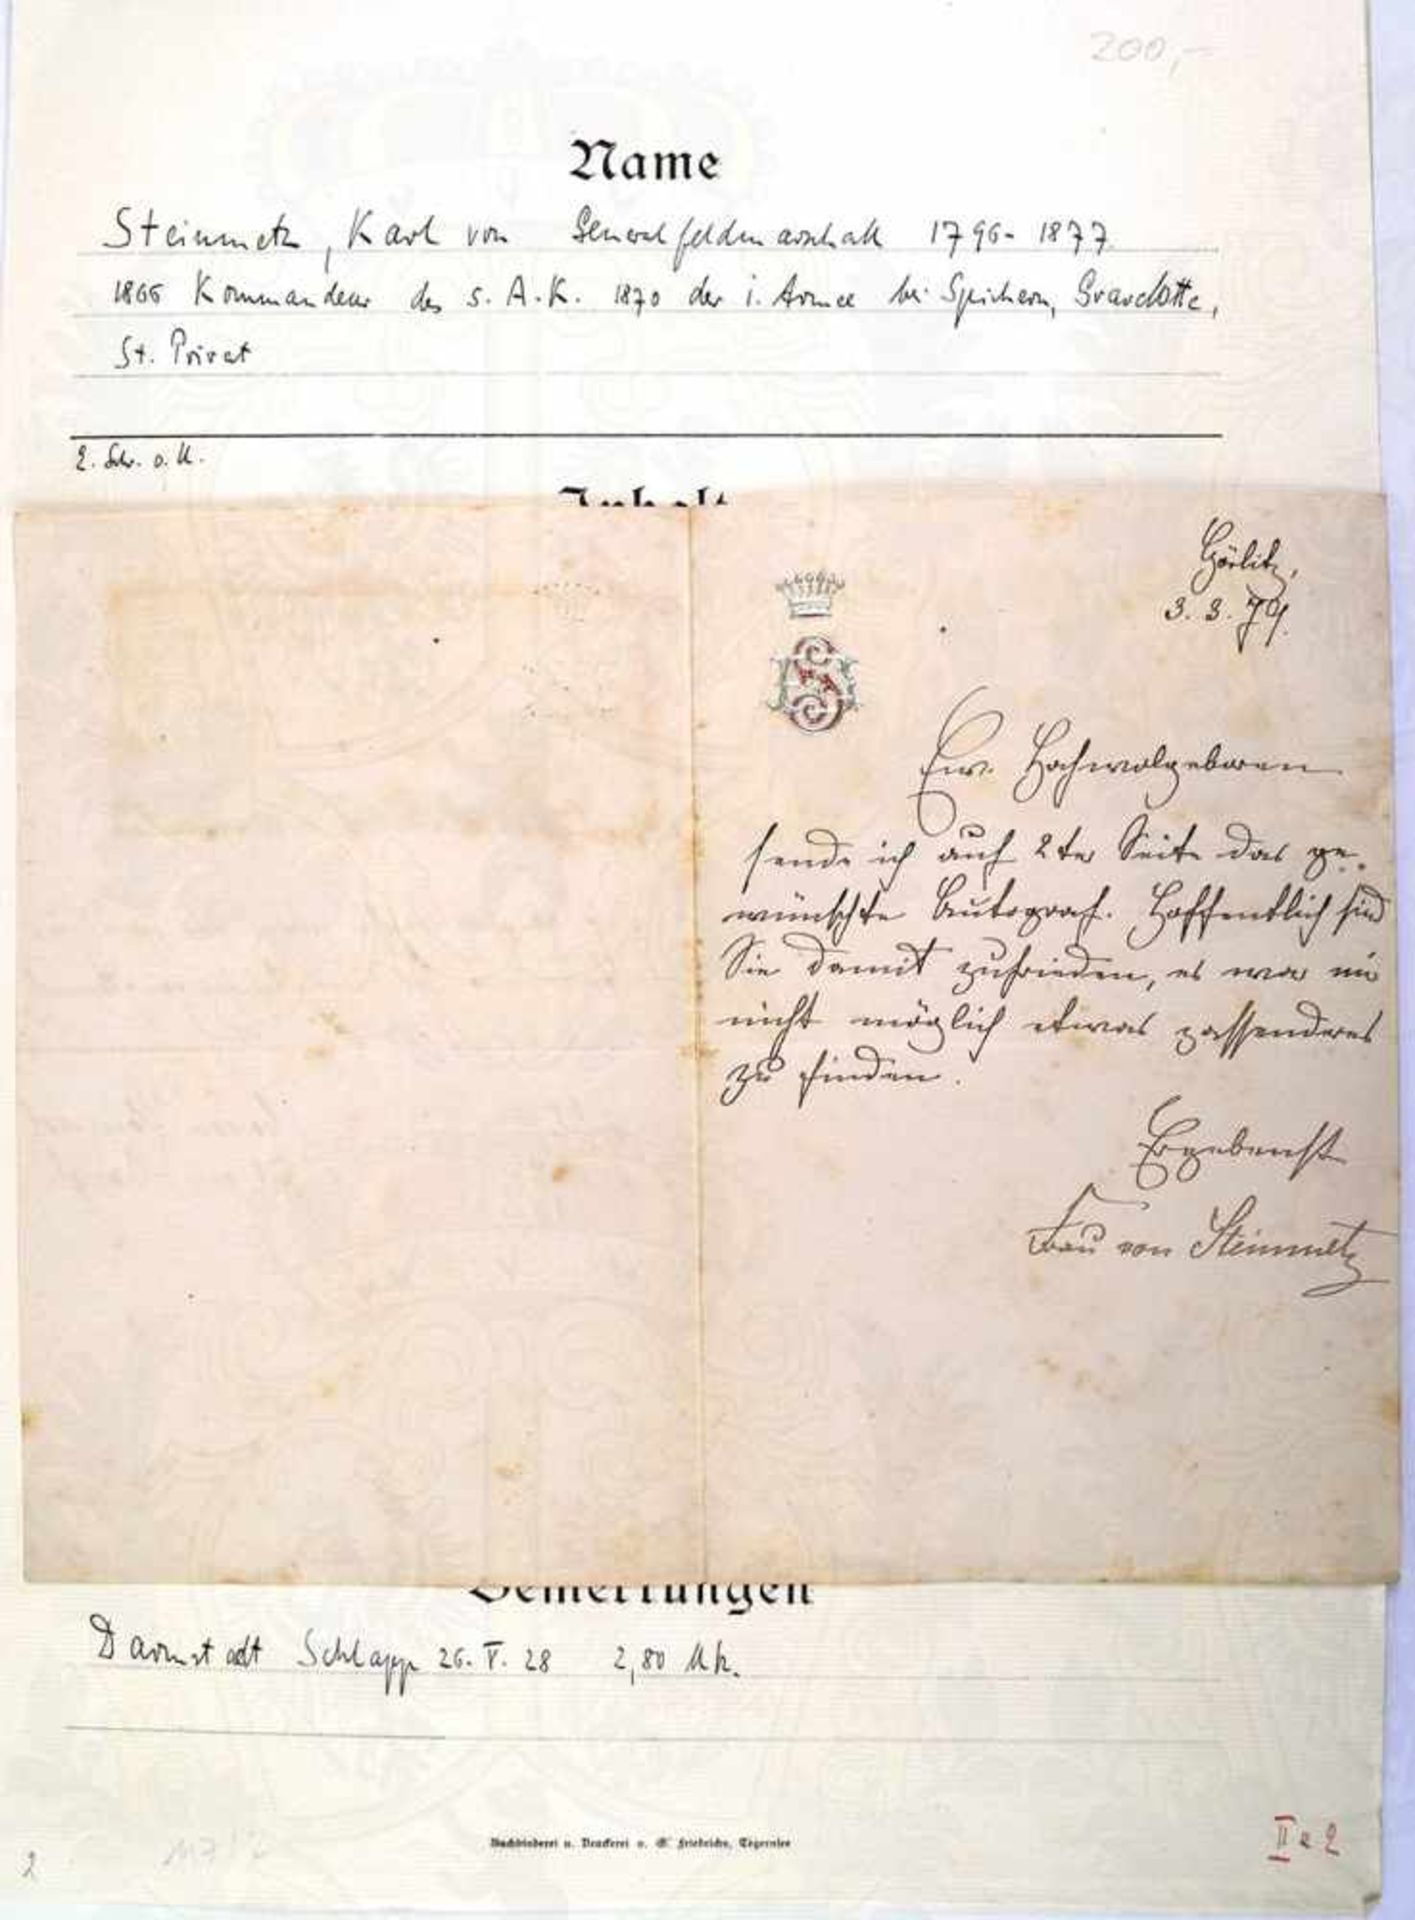 200,-
Name
Steinmetz, Karl von Generalfeldmarschall 1796-1877
1866 Kommandeur des 5. A.K. 1870 der 1. Armee bei Spichern, Gravelotte,
St. Privat
E. Schr. o. U.
Inhalt
Görlitz,
3. 3. 79.
Ew. Hochwolgeboren
sende ich auf 2ter Seite das ge-
wünschte Autograf. Hoffentlich sind
Sie damit zufrieden, es war mir
nicht möglich etwas passenderes
zu finden.
Ergebenst
Frau von Steinmetz
Bemerkungen
Darmstadt Schlapp 26. V. 28 2,80 Mk.
Buchbinderei u. Druckerei v. Friedrichs, Tegernsee
II a 2
2